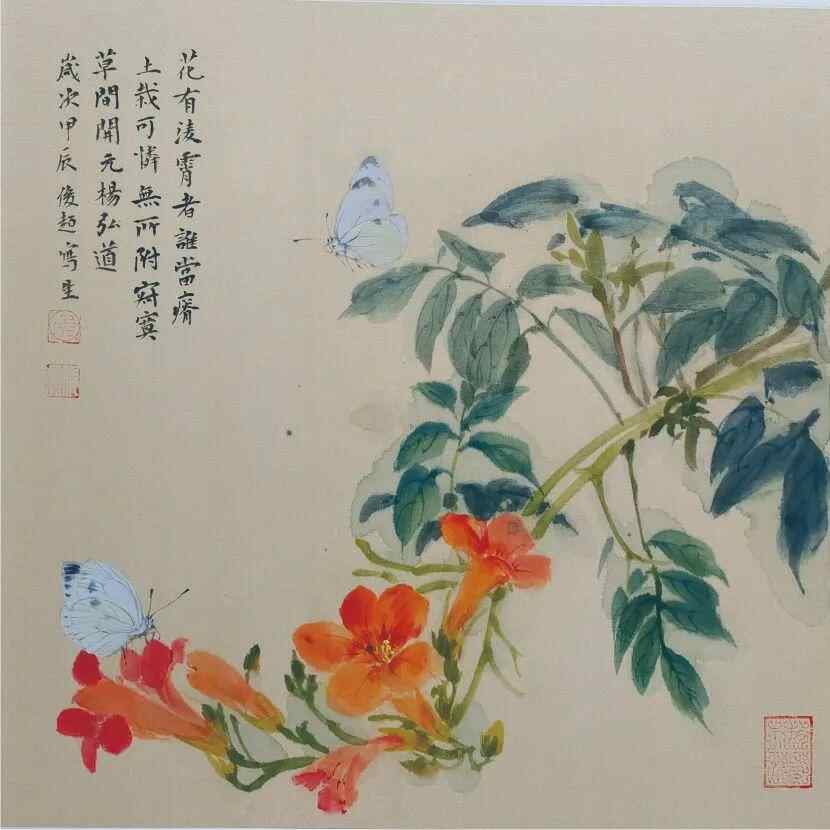 花有淩霄者誰當瘠
土栽可憐無所附寂寞
草間開元楊弘道
歲次甲辰俊超寫生